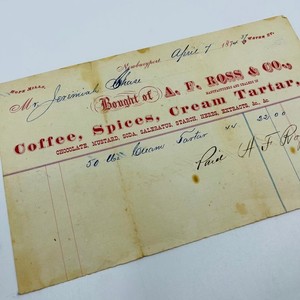 Newburyport April 7 187
WATER ST.
Mr Jeremiah Chase
Bought of A. F. ROSS & CO.,
MANUFACTURERS AND DEALERS IN
Coffee, Spices, Cream Tartar,
CHOCOLATE, MUSTARD, SODA, SALERATUS, STARCH, HERBS, EXTRACTS, &c., &c.
50 lbs Cream Tartar 44 22.00
Paid A F Ro